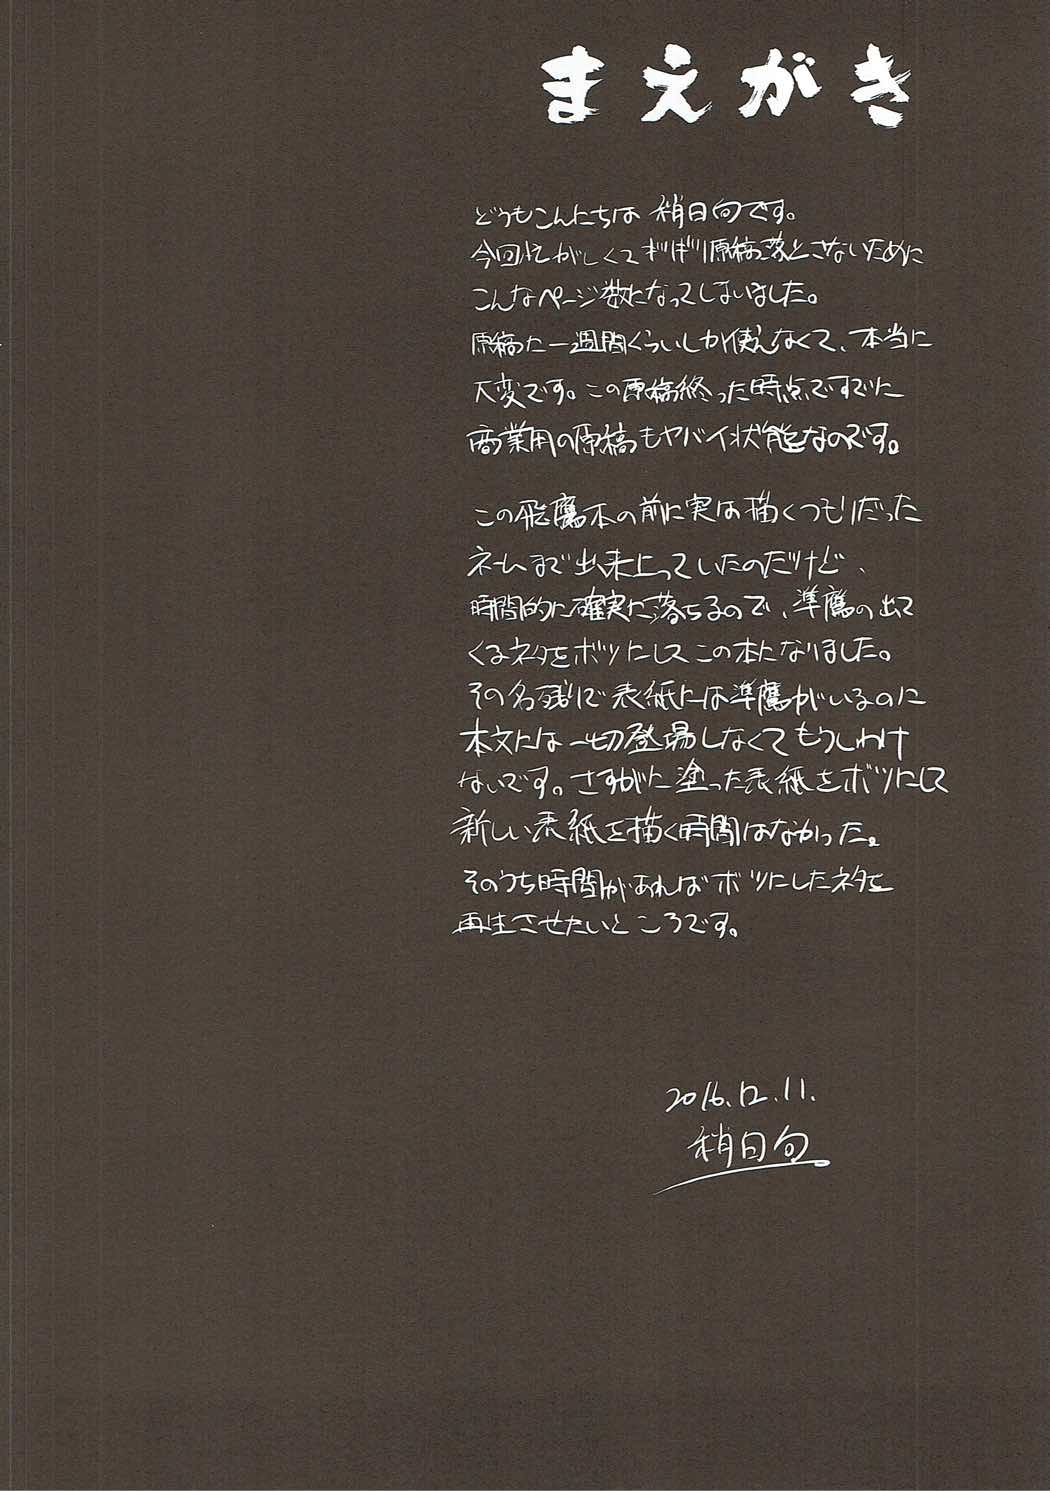 まえがき
どうもこんにちは 稍日向です。
今回忙がしくてギリギリ原稿落とさないために
こんなページ数になってしまいました。
原稿に一週間くらいしか使えなくて、本当に
大変です。この原稿終った時点ですでに
商業用の原稿もヤバイ状態なのです。
この飛鷹本の前に実は描くつもりだった
ネームまで出来上っていたのだけど、
時間的に確実に落ちるので、準鷹の出て
くるネタをボツにしてこの本になりました。
その名残りで表紙には準鷹がいるのに
本文には一切登場しなくてもうしわけ
ないです。さすがに塗った表紙をボツにして
新しい表紙を描く時間はなかった。
そのうち時間があればボツにしたネタを
再生させたいところです。
2016.12.11.
稍日向